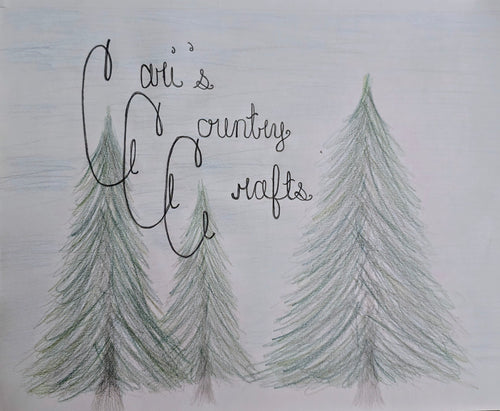 Cari's
Country
Crafts